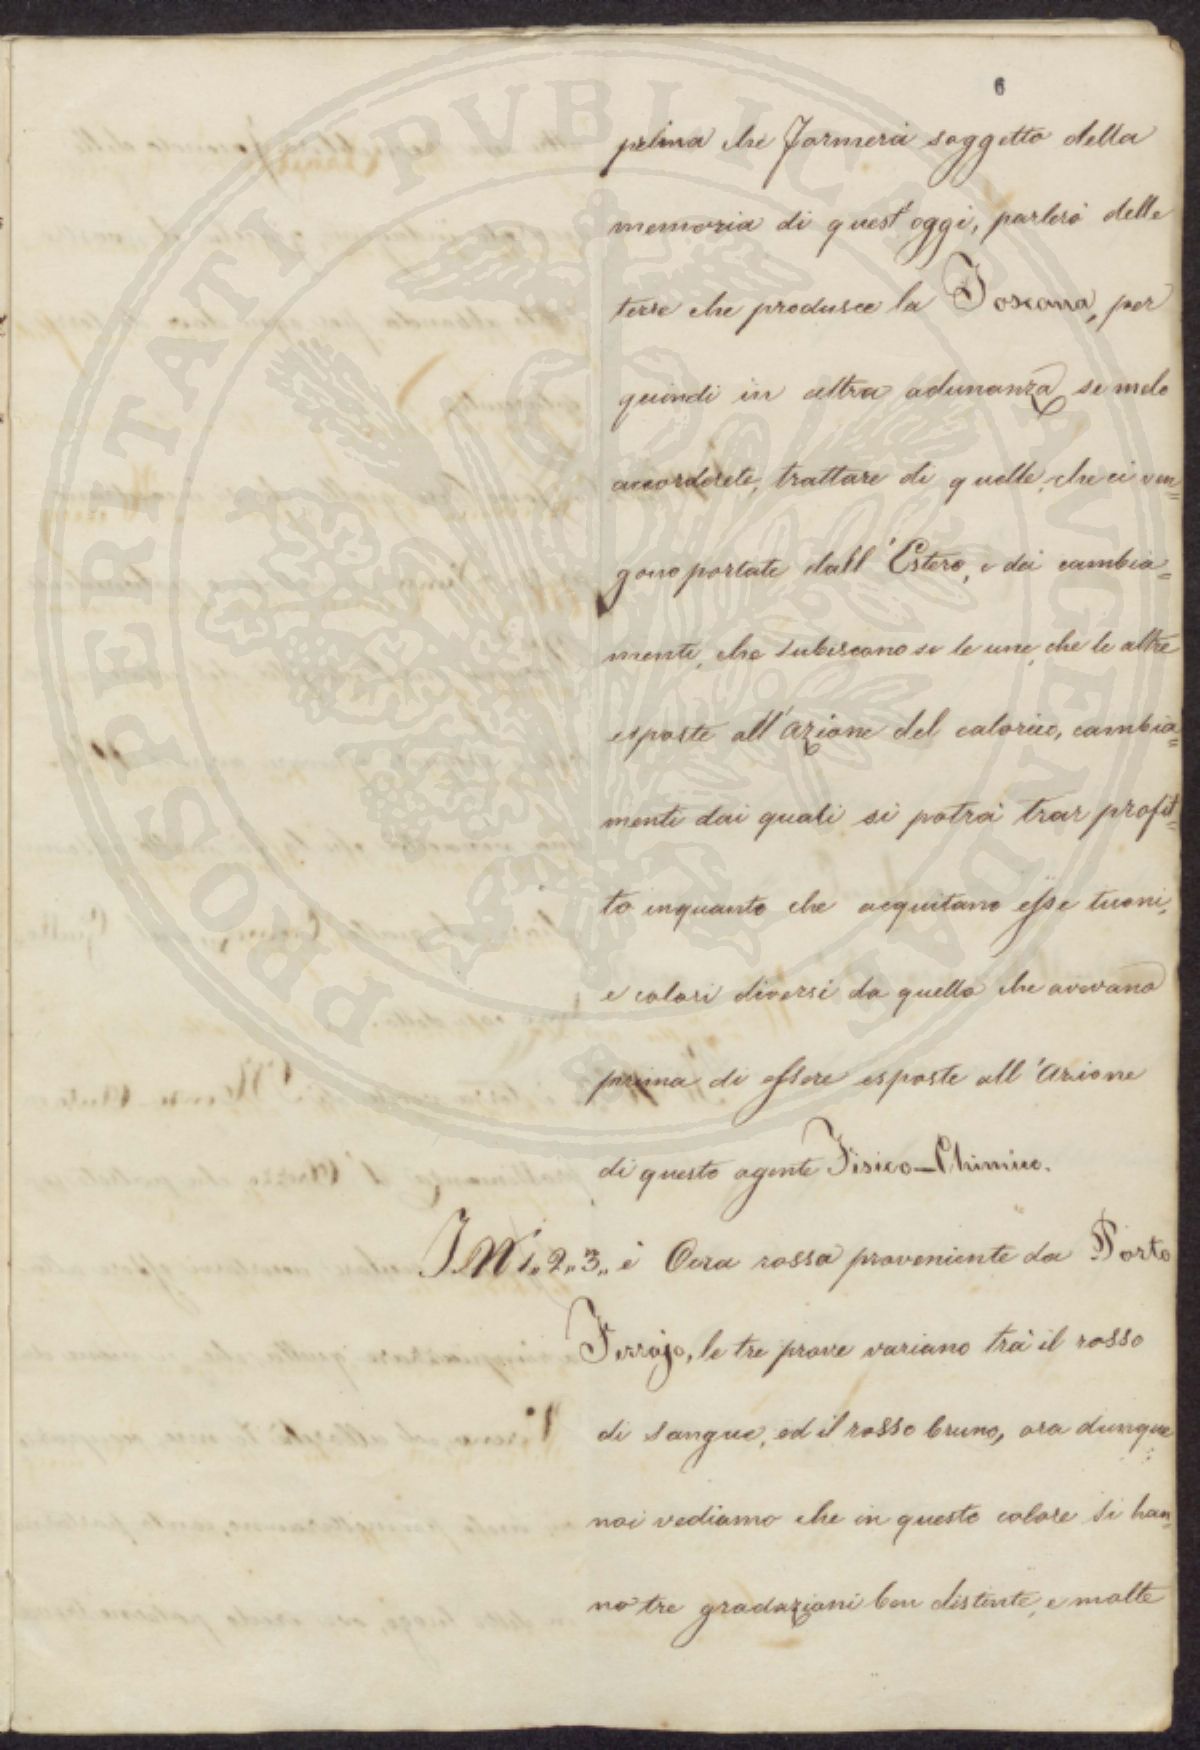 6
prima che formerà soggetto della
memoria di quest'oggi, parlerò delle
terre che produsce la Toscana, per
quindi in altra adunanza, se melo
accorderete, trattare di quelle, che ci ven=
gono portate dall'Estero, e dei cambia=
menti, che subiscono si le une, che le altre
esposte all'azione del calorico, cambia=
menti dai quali si potrà trar profit=
to inquanto che acquitano esse tuoni,
e colori diversi da quello che avevano
prima di essere esposte all'azione
di questo agente Fisico-Chimico.
I Ni 1,, 2,, 3,, è Ocra rossa proveniente da Porto
Ferrajo, le tre prove variano trà il rosso
di sangue, ed il rosso bruno, ora dunque
noi vediamo che in questo colore si han=
no tre gradazioni ben distinte, e molte
PROSPERITATI PVBLICAE AVGENDAE